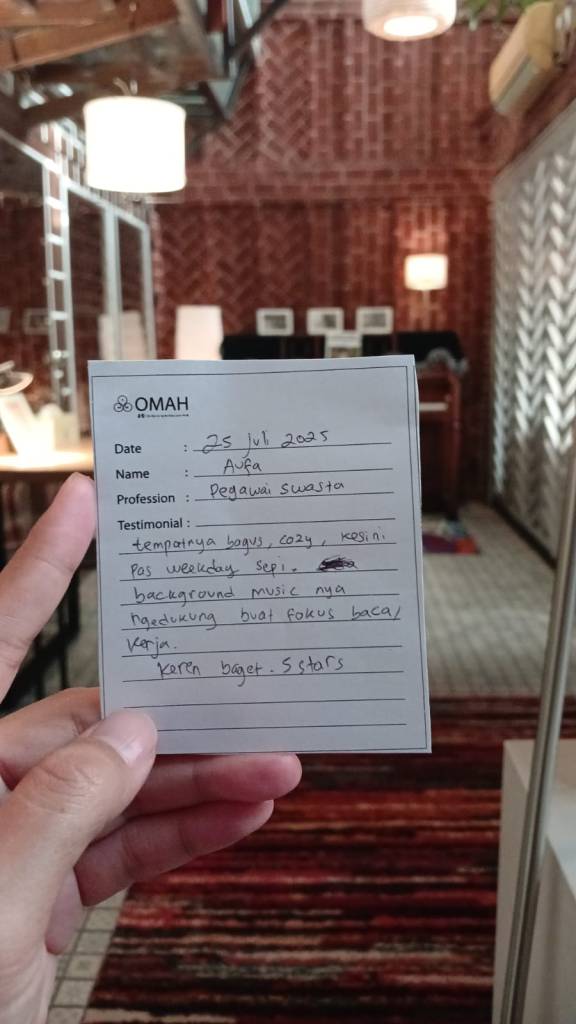 OMAH
Date : 25 juli 2025
Name : Aufa
Profession : Pegawai swasta
Testimonial :
tempatnya bagus, cozy, kesini
pas weekday sepi.
background music nya
ngedukung buat fokus baca/
kerja.
keren baget. 5 stars